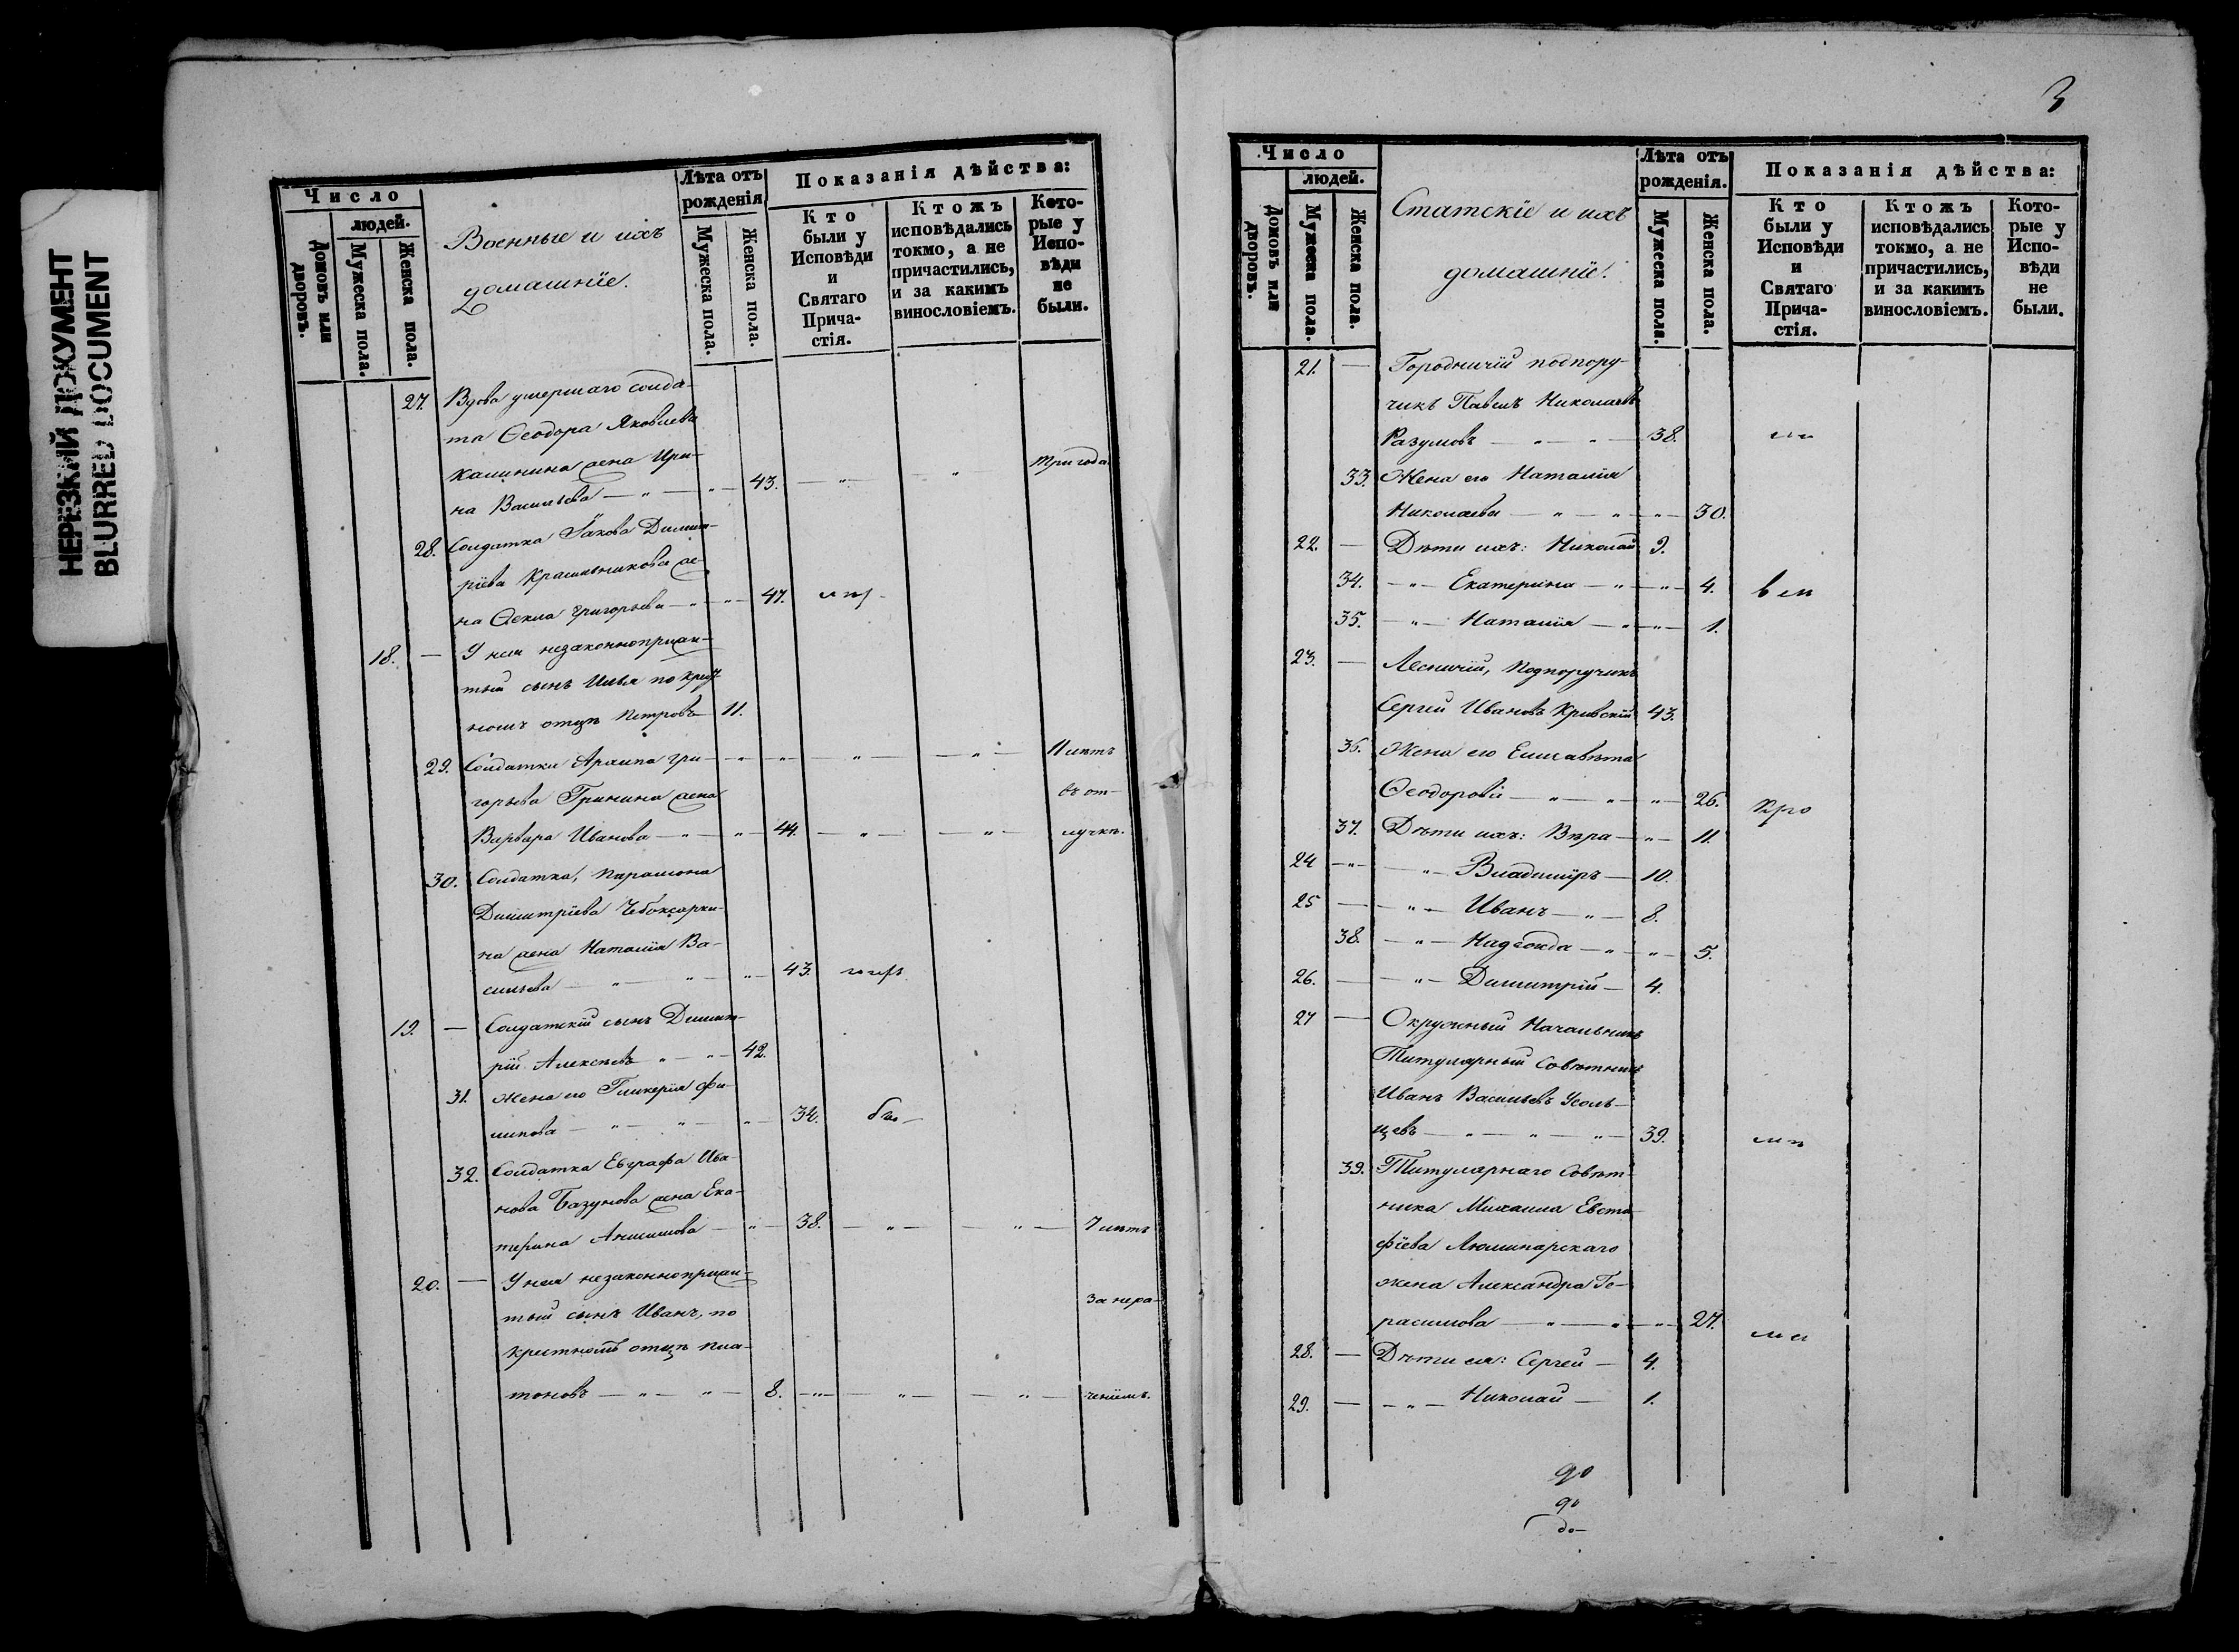 НЕРЕЗКИЙ ДОКУМЕНТ
BLURRED DOCUMENT
Число
людей.
Домовъ или дворовъ.
Мужеска пола.
Женска пола.
Военные и ихъ
домашніе.
Лѣта отъ рожденія
Мужеска пола.
Женска пола.
Показанія дѣйства:
Кто были у Исповѣди и Святаго Прича-стія.
Ктожъ исповѣдались токмо, а не причастились, и за какимъ винословіемъ.
Кото-рые у Испо-вѣди не были.
27. Вдова умершаго солда-
та Ѳеодора Яковлева
Калинина жена Ири-
на Васильева — " — " — 43. — " — " три года
28. Солдатка Іакова Димит-
ріева Красильникова же-
на Ѳекла Григорьева — " — " — 47.
18. — У нея незаконноприжи-
тый сынъ Илья по крест
номъ отцѣ Петровъ 11.
29. Солдатки Архипа Гри- — " — " — " — " — 11 лѣтъ
горьева Гринина жена въ от-
Варвара Иванова — " — " — 44. — " — " — лучкѣ.
30. Солдатка, Парамона
Димитріева Чебоксарки-
на жена Наталія Ва-
сильева — " — " — " — 43.
19. — Солдатскій сынъ Димит-
рій Алексѣевъ " — " — 42.
31. Жена его Гликерія Фи-
липова — " — " — " — 34.
32. Солдатка Евграфа Ива-
нова Базунова жена Ека-
терина Анисимова — " — 38. — " — " — 7 лѣтъ
20. — У нея незаконноприжи-
тый сынъ Иванъ, по за нера-
крестномъ отцѣ Пла-
тоновъ — " — " — 8. — " — " — " — ченіемъ.
3
Число
людей.
Домовъ или дворовъ.
Мужеска пола.
Женска пола.
Статскіе и ихъ
домашніе.
Лѣта отъ рожденія.
Мужеска пола.
Женска пола.
Показанія дѣйства:
Кто были у Исповѣди и Святаго Прича-стія.
Ктожъ исповѣдались токмо, а не причастились, и за какимъ винословіемъ.
Кото-рые у Испо-вѣди не были.
21. — Городничій подпору-
чикъ Павелъ Николаевъ
Разумовъ — " — " — 38.
33. Жена его Наталія
Николаева — " — " — " — 30.
22. — Дѣти ихъ: Николай 9.
34. — " — Екатерина — " — " — 4.
35. — " — Наталія — " — " — 1.
23. — Лесничій, Подпоручикъ
Сергей Ивановъ Кривскій 43.
36. Жена его Елисавѣта
Ѳеодорова — " — " — " — 26.
37. Дѣти ихъ: Вѣра — " — 11.
24 — " — " — Владиміръ — 10.
25 — " — Иванъ — " — 8.
38. — " — Надежда — " — " — 5.
26. — " — Димитрій — 4.
27 — Окружный Начальникъ
Титулярный Совѣтникъ
Иванъ Васильевъ Усоль-
цевъ — " — " — " — 39.
39. Титулярнаго Совѣт-
ника Михаила Евста-
фіева Люминарскаго
жена Александра Ге-
расимова — " — " — " — 27.
28. — Дѣти ея: Сергей — 4.
29. — " — Николай — 1.